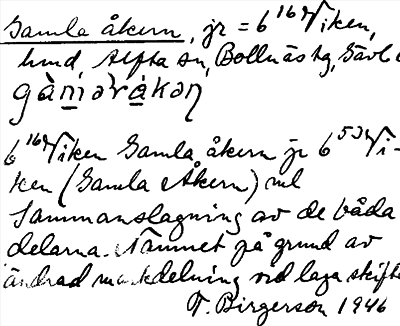 Gamla åkern, jr = 6¹⁶ Viken,
hmd, Alfta sn, Bollnäs tg, Gävl
gàmɜråkɜn
6¹⁶ Viken Gamla åkern jr 6⁵³ Vi-
ken (Gamla Åkern) ml
Sammanslagning av de båda
delarna. Namnet på grund av
ändrad markdelning vid laga skifte
T. Birgerson 1946